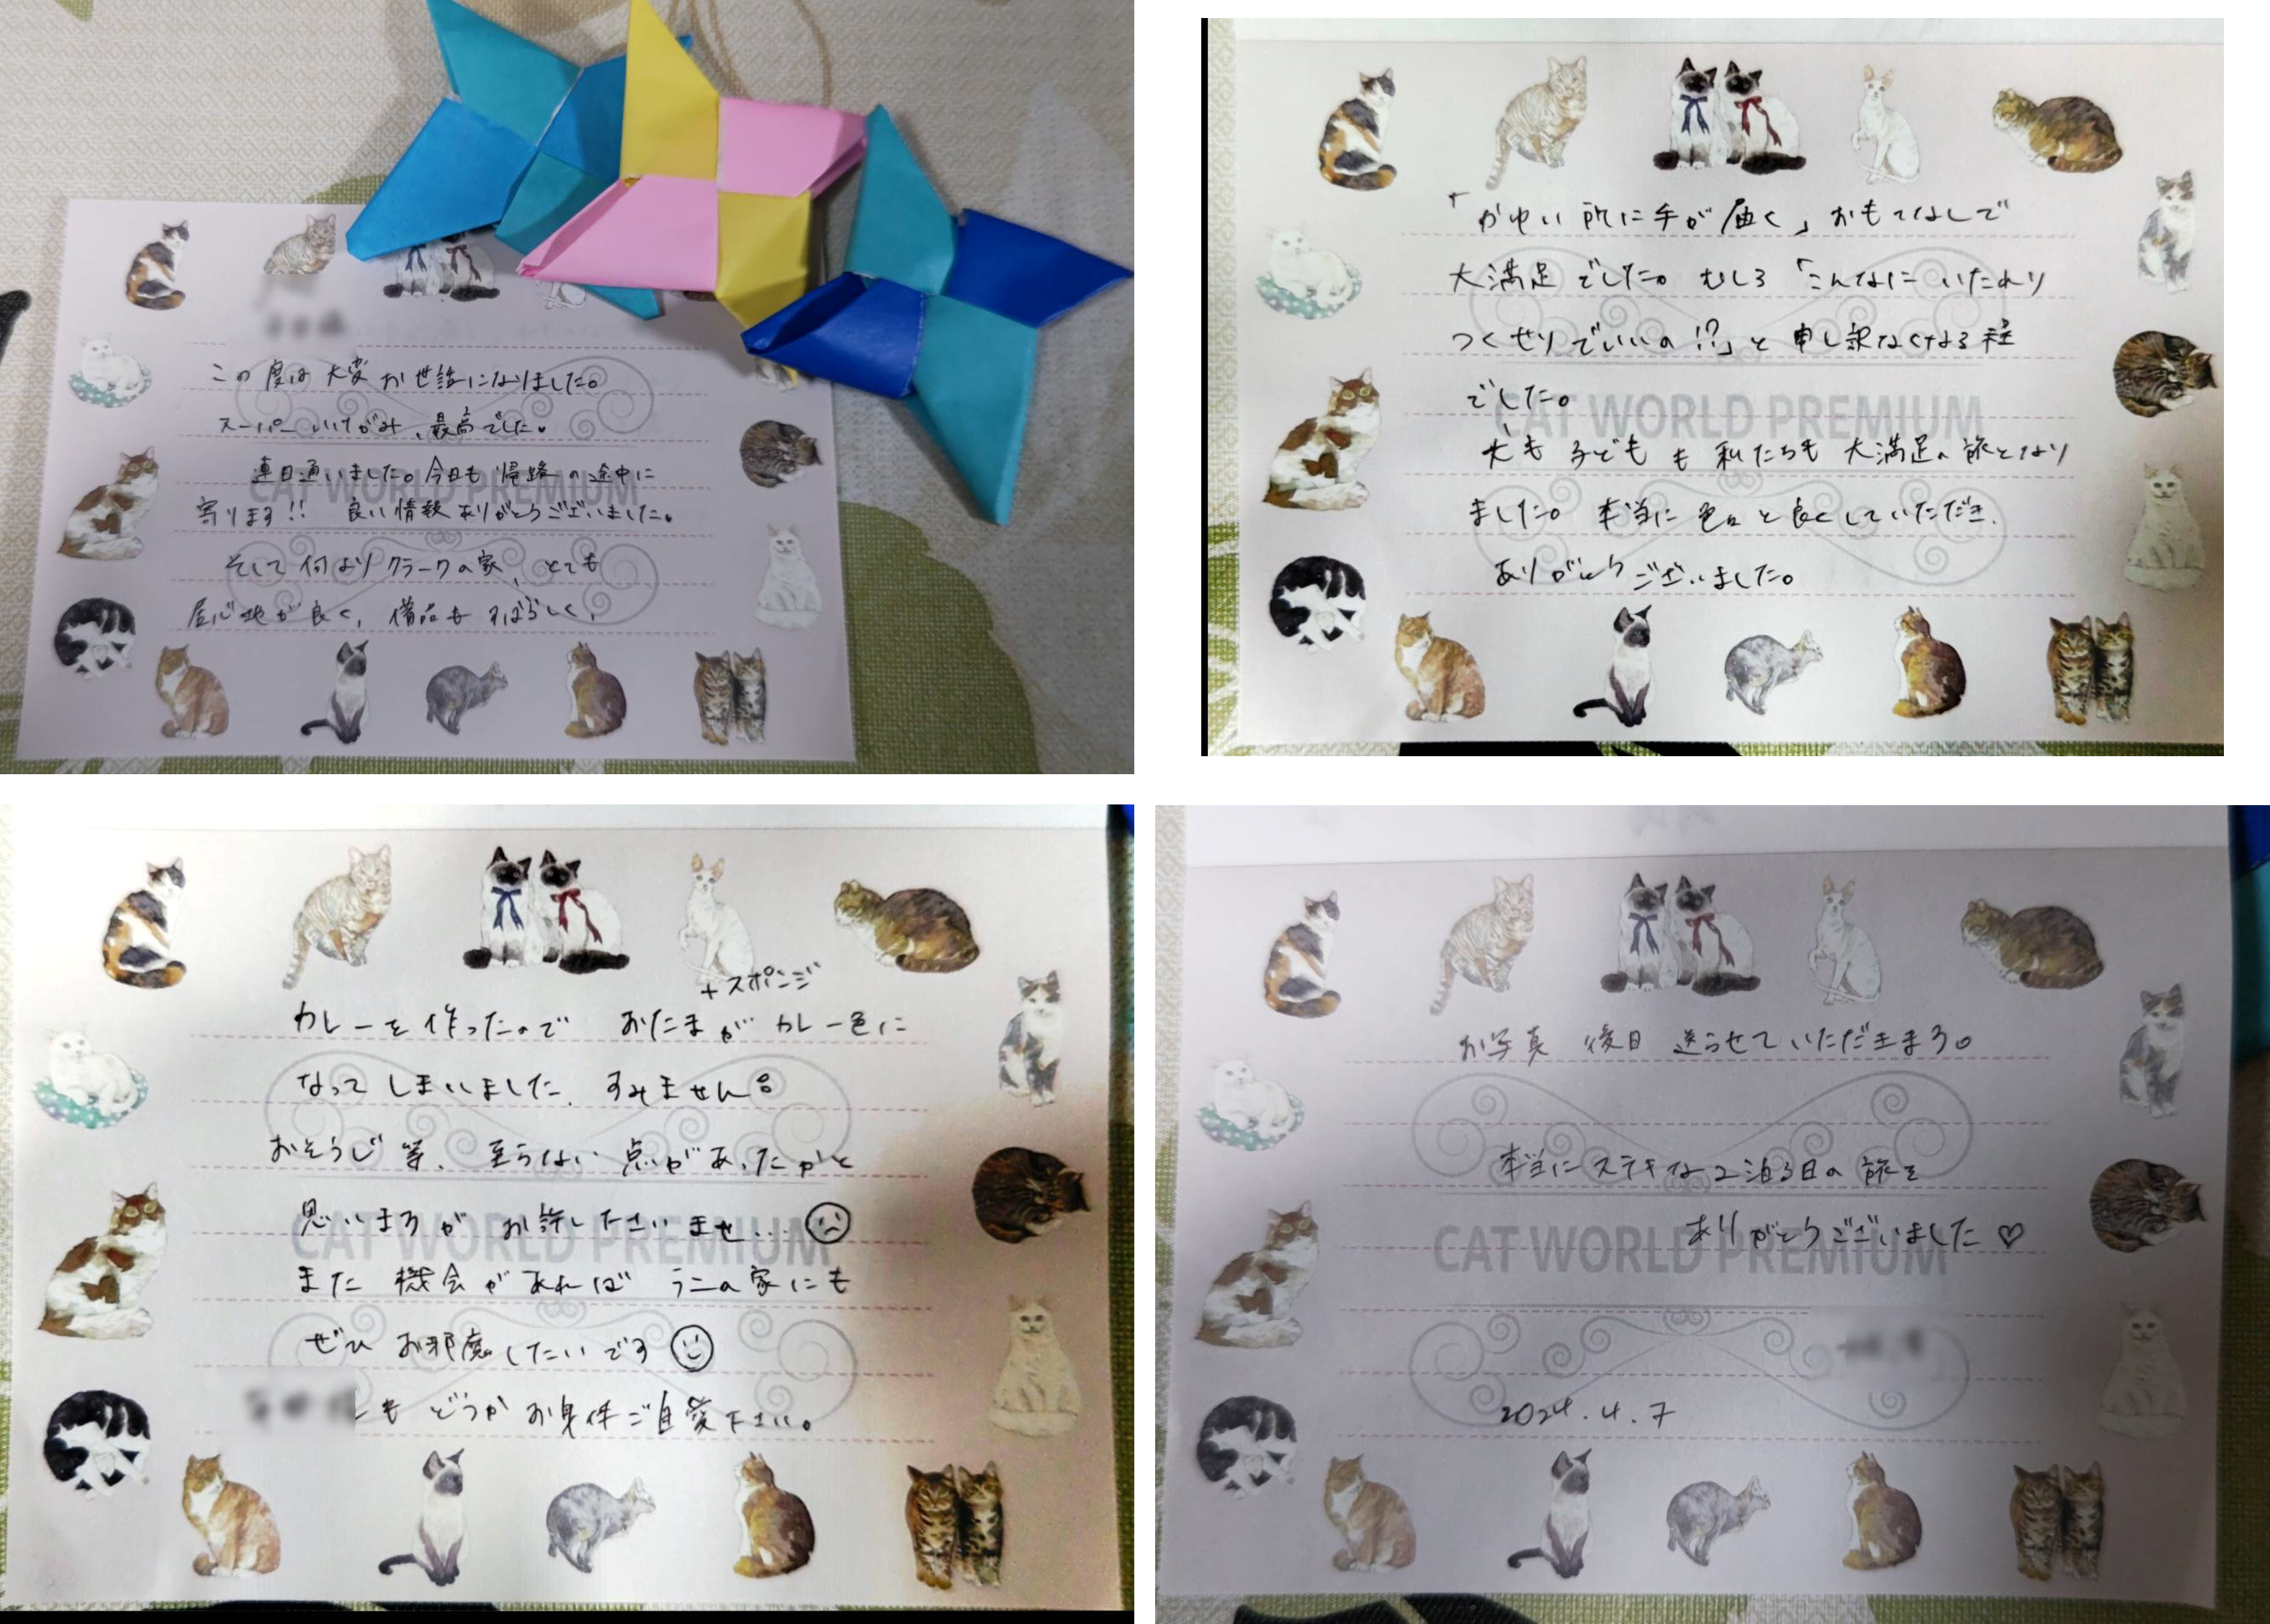 この度は大変お世話になりました。
スーパーいけがみ、最高でした。
連日通いました。今日も帰路の途中に
寄ります!! 良い情報ありがとうございました。
そして何よりクラークの家、とても
居心地が良く、備品もすばらしく、
CAT WORLD PREMIUM
「かゆい所に手が届く」おもてなしで
大満足でした。むしろ「こんなにいたれり
つくせりでいいの!?」と申し訳なくなる程
でした。
犬も子どもも私たちも大満足の旅となり
ました。本当に色々と良くしていただき、
ありがとうございました。
CAT WORLD PREMIUM
+スポンジ
カレーを作ったので おたまが カレー色に
なってしまいました、すみません。
おそうじ等、至らない点があったかと
思いますが お許しくださいませ...
また機会があれば ラニの家にも
ぜひお邪魔したいです
も どうか お身体ご自愛下さい。
CAT WORLD PREMIUM
お写真 後日 送らせていただきます。
本当にステキな2泊3日の旅を
ありがとうございました♡
CAT WORLD PREMIUM
2024.4.7